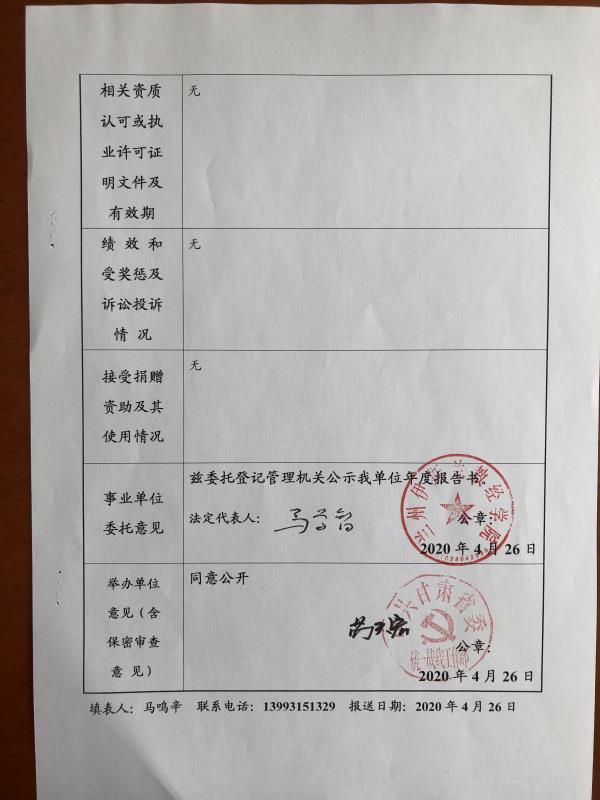 相关资质
认可或执
业许可证
明文件及
有效期
无
绩 效 和
受奖惩及
诉讼投诉
情 况
无
接受捐赠
资助及其
使用情况
无
事业单位
委托意见
兹委托登记管理机关公示我单位年度报告书。
法定代表人：
公章：
2020 年 4 月 26 日
兰州伊斯兰教经学院
举办单位
意见（含
保密审查
意 见）
同意公开
公章：
2020 年 4 月 26 日
中共甘肃省委
统一战线工作部
填表人：马鸣辛 联系电话：13993151329 报送日期：2020 年 4 月 26 日